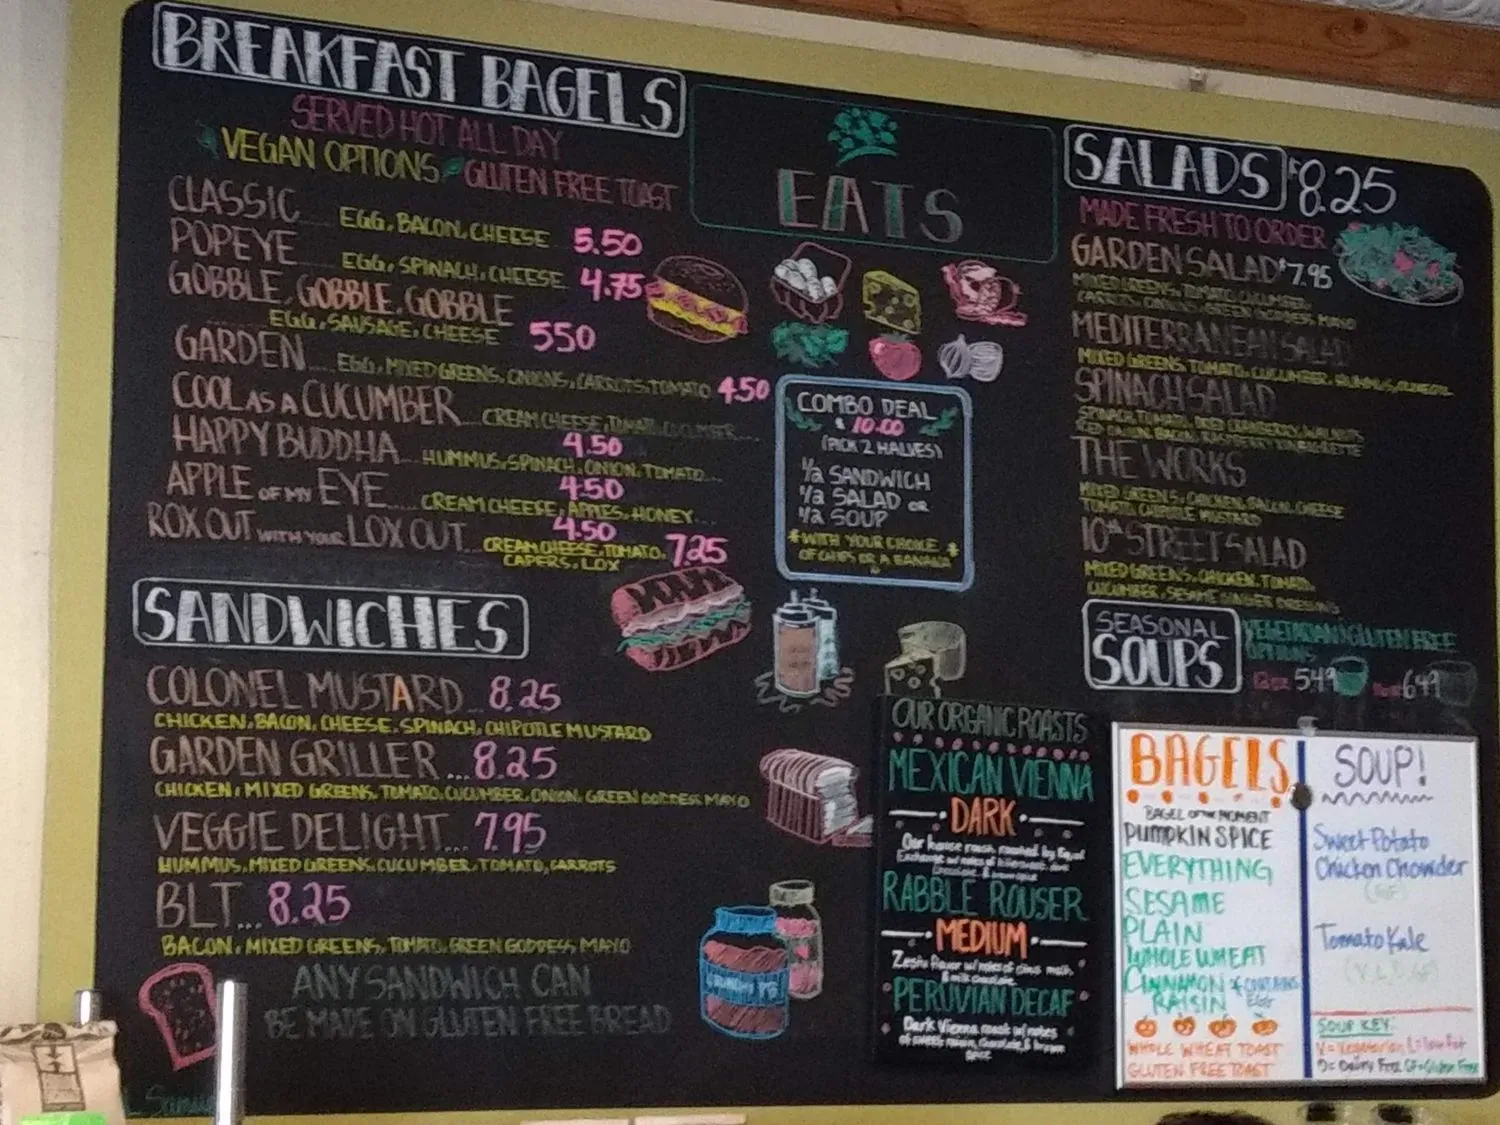 BREAKFAST BAGELS
SERVED HOT ALL DAY
VEGAN OPTIONS GLUTEN FREE TOAST
CLASSIC
EGG, BACON, CHEESE 5.50
POPEYE
EGG, SPINACH, CHEESE 4.75
GOBBLE, GOBBLE, GOBBLE
EGG, SAUSAGE, CHEESE 550
GARDEN.... EGG, MIXED GREENS, ONIONS, CARROTS, TOMATO 4.50
COOL AS A CUCUMBER CREAM CHEESE, TOMATO, CUCUMBER...
4.50
HAPPY BUDDHA... HUMMUS, SPINACH, ONION, TOMATO...
4.50
APPLE OF MY EYE.... CREAM CHEESE, APPLES, HONEY...
4.50
ROX OUT WITH YOUR LOX OUT... CREAM CHEESE, TOMATO, 7.25
CAPERS, LOX
SANDWICHES
COLONEL MUSTARD... 8.25
CHICKEN, BACON, CHEESE, SPINACH, CHIPOTLE MUSTARD
GARDEN GRILLER... 8.25
CHICKEN, MIXED GREENS, TOMATO, CUCUMBER, ONION, GREEN GODDESS MAYO
VEGGIE DELIGHT... 7.95
HUMMUS, MIXED GREENS, CUCUMBER, TOMATO, CARROTS
BLT... 8.25
BACON, MIXED GREENS, TOMATO, GREEN GODDESS, MAYO
ANY SANDWICH CAN
BE MADE ON GLUTEN FREE BREAD
EATS
COMBO DEAL
$ 10.00
(PICK 2 HALVES)
1/2 SANDWICH
1/2 SALAD OR
1/2 SOUP
*WITH YOUR CHOICE *
OF CHIPS OR A BANANA
OUR ORGANIC ROASTS
MEXICAN VIENNA
DARK
Our house roast roasted by Equal
Exchange w/ notes of
chocolate &
RABBLE ROUSER
MEDIUM
Zesty flavor w/ notes of citrus
& milk chocolate
PERUVIAN DECAF
Dark Vienna roast w/ notes
of sweet raisin, chocolate & brown
spice
SALADS $8.25
MADE FRESH TO ORDER
GARDEN SALAD $7.95
MIXED GREENS, TOMATO, CUCUMBER,
CARROTS, ONIONS, GREEN GODDESS, MAYO
MEDITERRANEAN SALAD
MIXED GREENS, TOMATO, CUCUMBER, HUMMUS,
SPINACH SALAD
SPINACH, TOMATO, DRIED CRANBERRY, WALNUTS,
RED ONION, BACON, RASPBERRY VINAIGRETTE
THE WORKS
MIXED GREENS, CHICKEN, BACON, CHEESE
TOMATO, CHIPOTLE MUSTARD
10TH STREET SALAD
MIXED GREENS, CHICKEN, TOMATO,
CUCUMBER, SESAME GINGER DRESSING
SEASONAL
SOUPS
VEGETARIAN & GLUTEN FREE
OPTIONS
12oz 5.49 16oz 6.49
BAGELS
BAGEL OF THE MOMENT
PUMPKIN SPICE
EVERYTHING
SESAME
PLAIN
WHOLE WHEAT
CINNAMON * CONTAINS
RAISIN EGG
WHOLE WHEAT TOAST
GLUTEN FREE TOAST
SOUP!
Sweet Potato
Chicken Chowder
(GF)
Tomato Kale
SOUP KEY:
V=Vegetarian L=low Fat
D= Dairy Free GF=Gluten Free